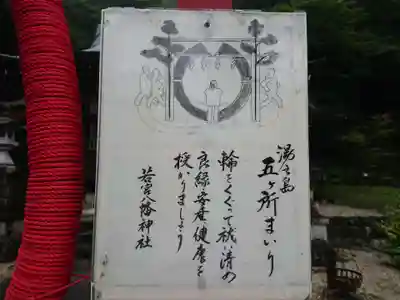 湯ヶ島
五ヶ所まいり
輪をくぐって祓い清め
良縁安産健康を
授かりましょう
若宮八幡神社